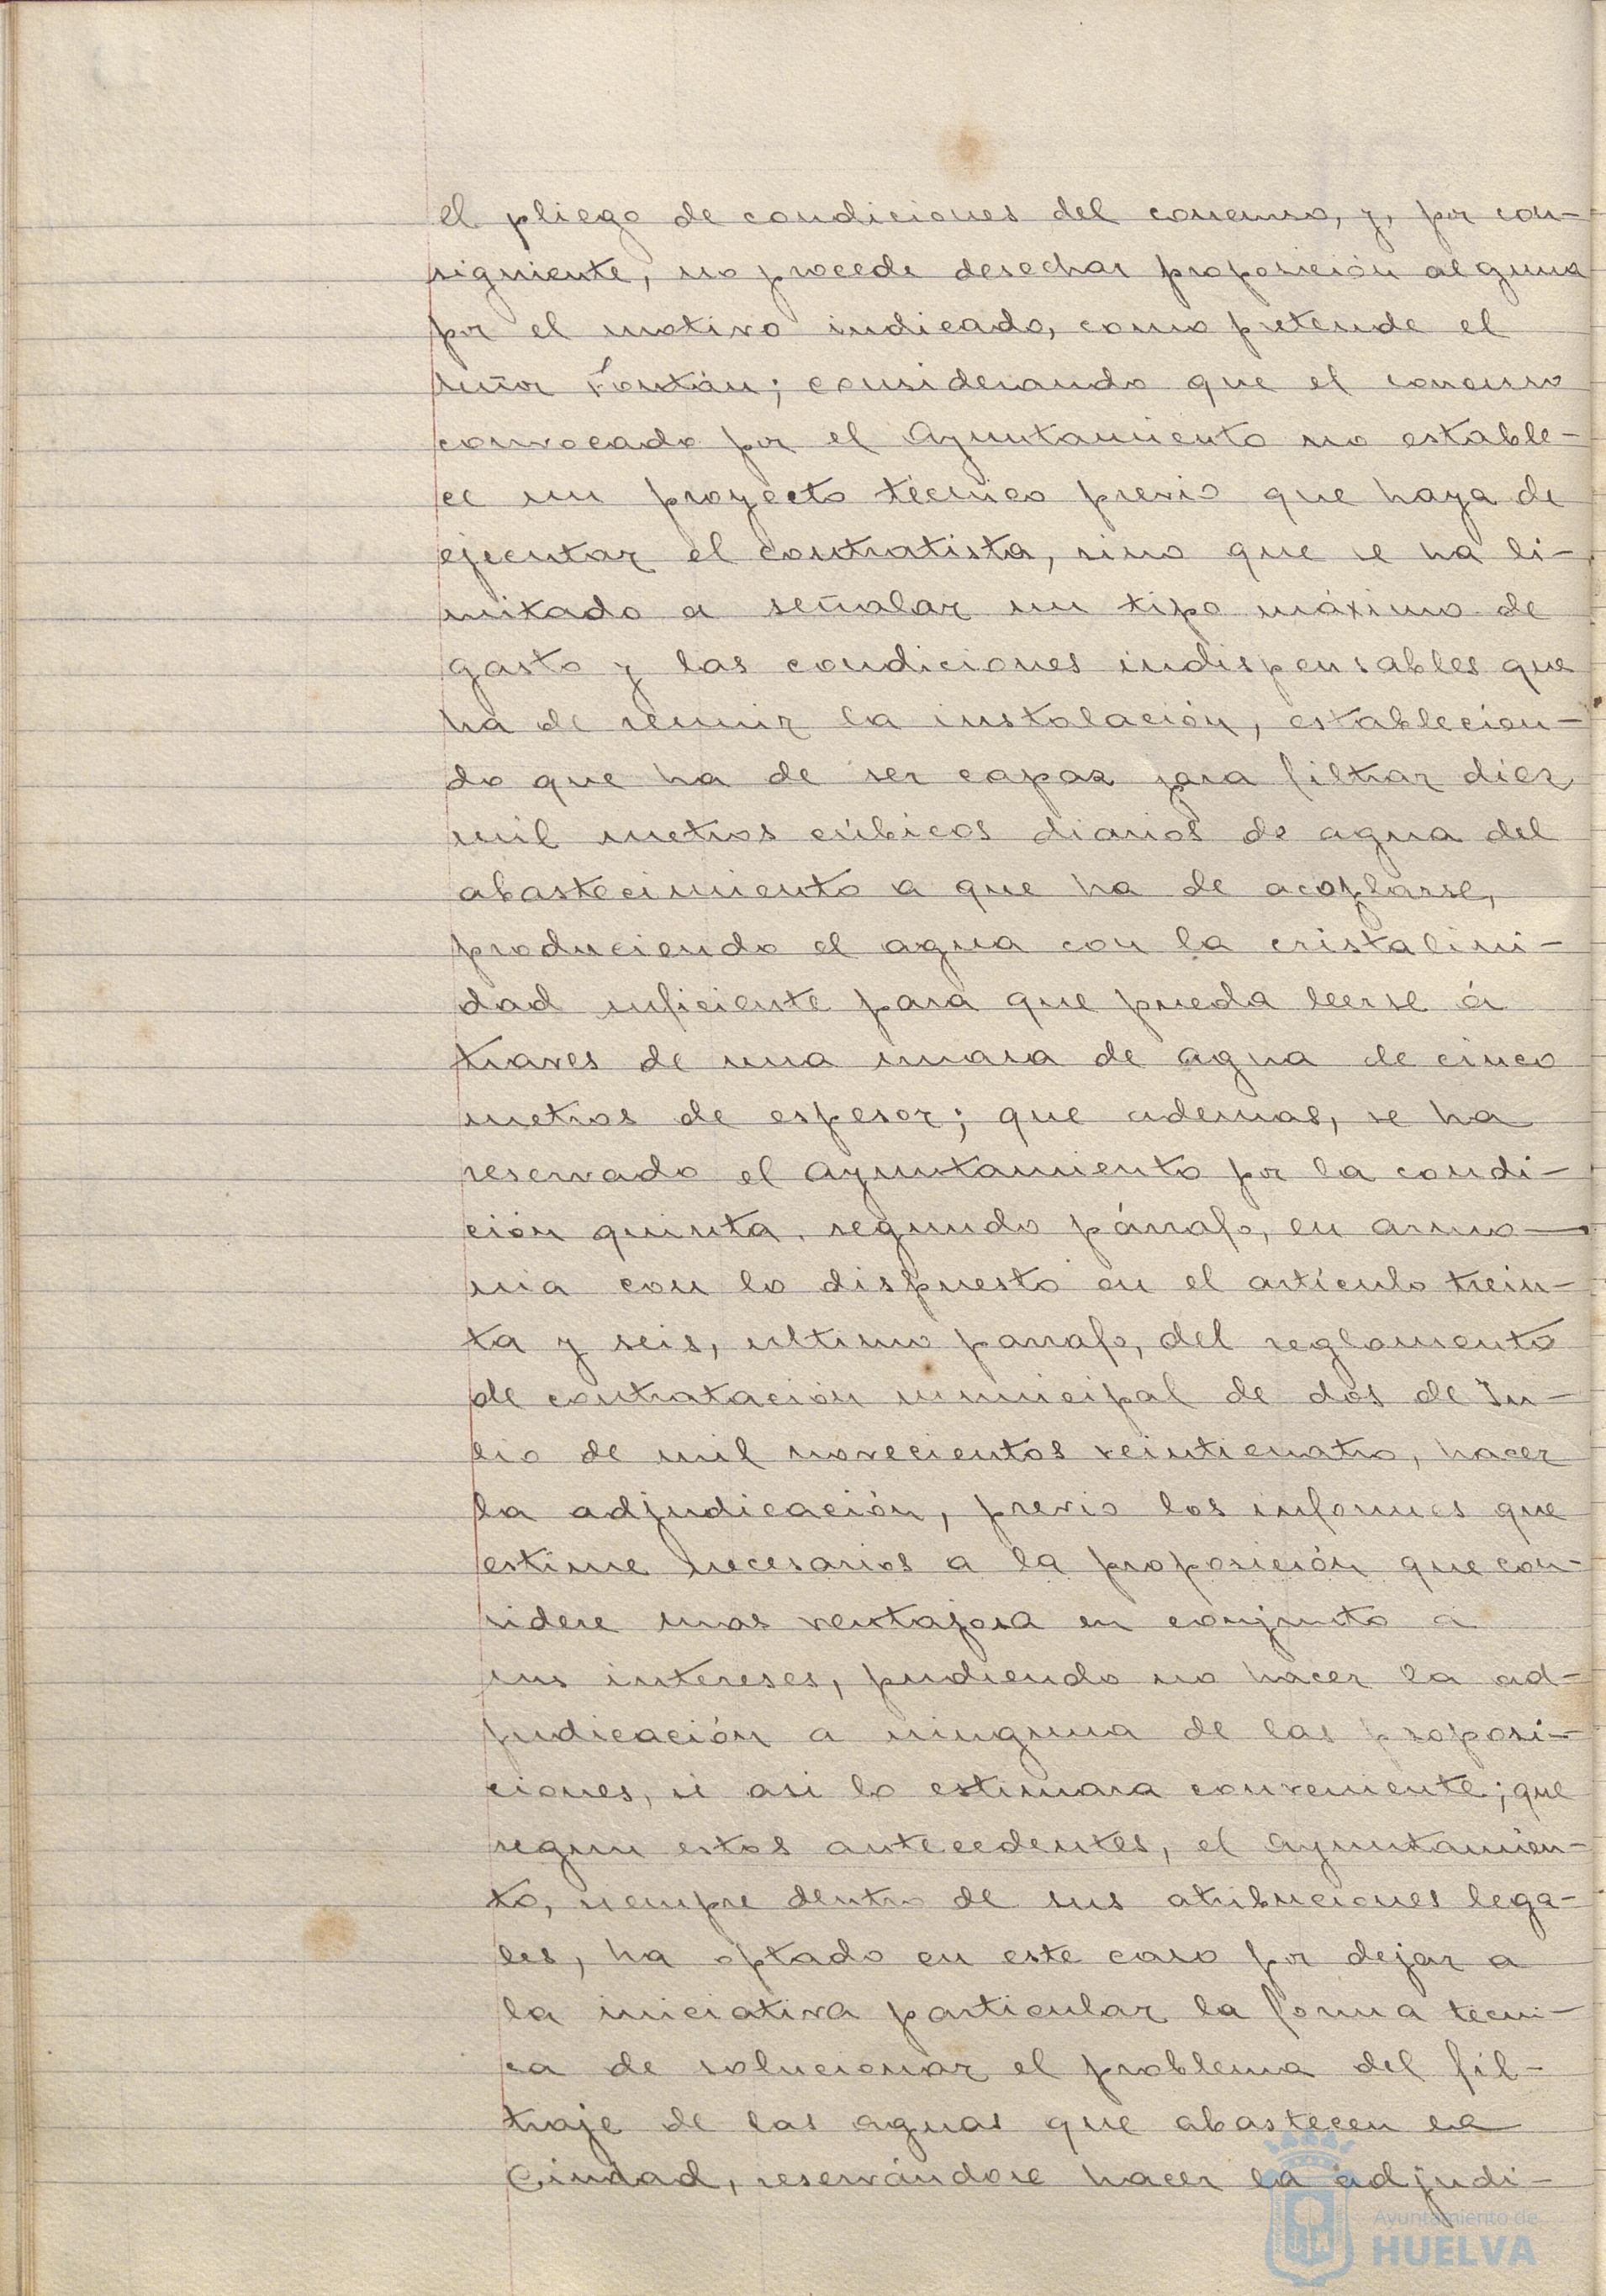 el pliego de condiciones del concurso, y, por con-
siguiente, no procede desechar proposición alguna
por el motivo indicado, como pretende el
señor Fontán; considerando que el concurso
convocado por el Ayuntamiento no estable-
ce un proyecto técnico previo que haya de
ejecutar el contratista, sino que se ha li-
mitado a señalar un tipo máximo de
gasto y las condiciones indispensables que
ha de reunir la instalación, establecien-
do que ha de ser capaz para filtrar diez
mil metros cúbicos diarios de agua del
abastecimiento a que ha de acoplarse,
produciendo el agua con la cristalini-
dad suficiente para que pueda leerse á
traves de una masa de agua de cinco
metros de espesor; que ademas, se ha
reservado el Ayuntamiento por la condi-
ción quinta, segundo párrafo, en armo-
nia con lo dispuesto en el artículo trein-
ta y seis, ultimo parrafo, del reglamento
de contratación municipal de dos de Ju-
lio de mil novecientos veinticuatro, hacer
la adjudicación, previo los informes que
estime necesarios a la proposición que con-
sidere mas ventajosa en conjunto a
sus intereses, pudiendo no hacer la ad-
judicación a ninguna de las proposi-
ciones, si asi lo estimara conveniente; que
segun estos antecedentes, el Ayuntamien-
to, siempre dentro de sus atribuciones lega-
les, ha optado en este caso por dejar a
la iniciativa particular la forma técni-
ca de solucionar el problema del fil-
traje de las aguas que abastecen la
Ciudad, reservándose hacer la adjudi-
Ayuntamiento de
HUELVA